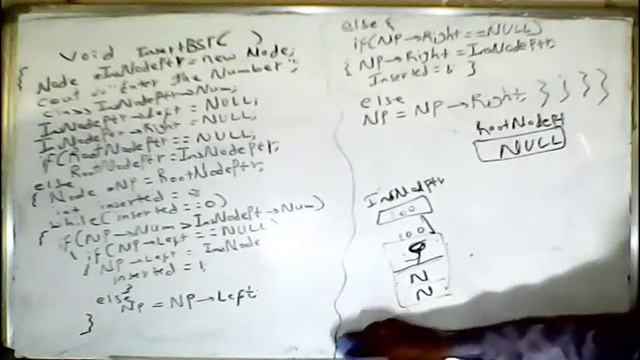 void InsertBST( )
{
Node *InsNodePtr = new Node;
cout << "Enter the Number";
cin >> InsNodePtr→Num;
InsNodePtr→Left = NULL;
InsNodePtr→Right = NULL;
if(RootNodePtr == NULL)
RootNodePtr = InsNodePtr;
else
{ Node *NP = RootNodePtr;
int inserted = 0;
while(inserted == 0)
{ if(NP→Num > InsNodePtr→Num)
{ if(NP→Left == NULL
{ NP→Left = InsNode
inserted = 1;
}
else
NP = NP→Left
}
else {
if(NP→Right == NULL)
{ NP→Right = InsNodePtr;
Inserted = 1; }
else
NP = NP→Right; } } } }
RootNodePt
NULL
InsNodePtr
100
100
9
N
N